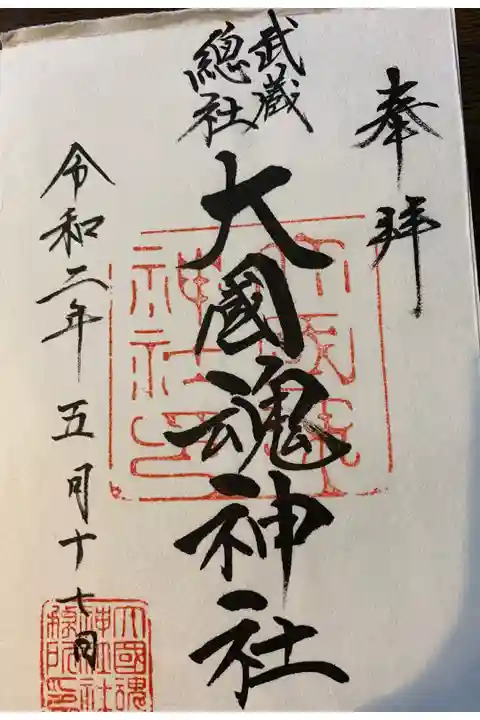 奉拝
武蔵
總社
大國魂神社
令和二年五月十七日
大國魂
神社社
務所印